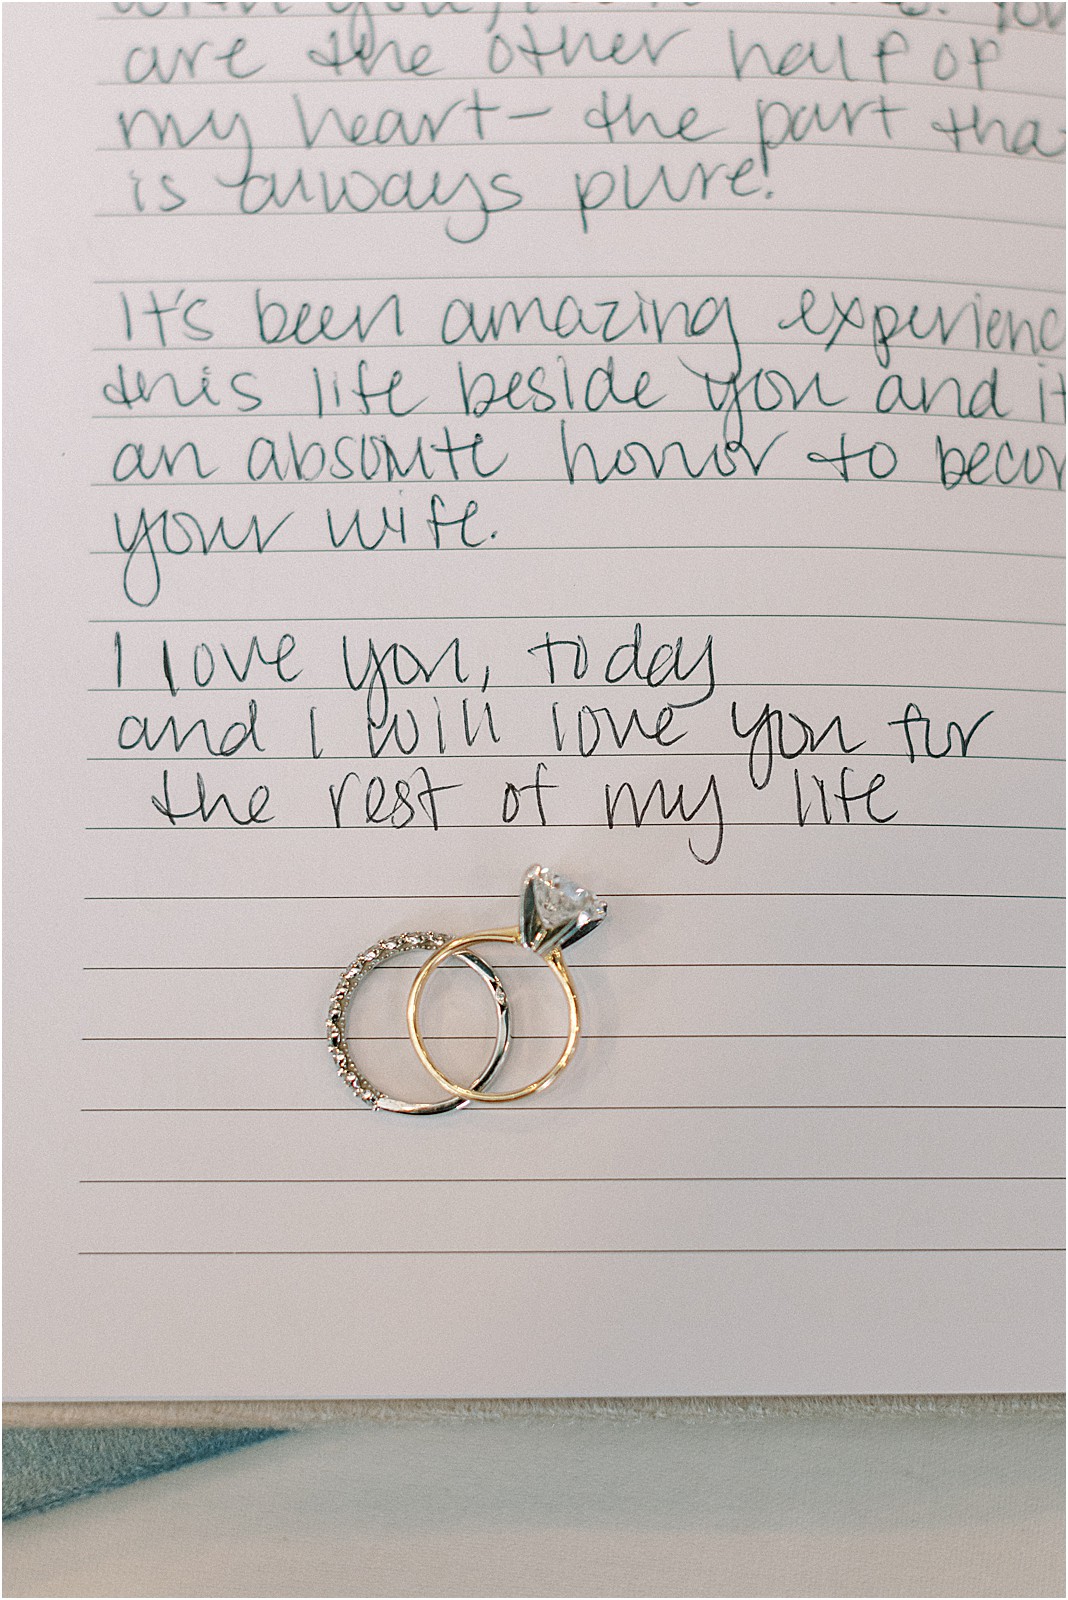 You
are the other half of
my heart - the part tha
is always pure!
It's been amazing experienc
this life beside you and it
an absolute honor to becom
your wife.
I love you, today
and I will love you for
the rest of my life